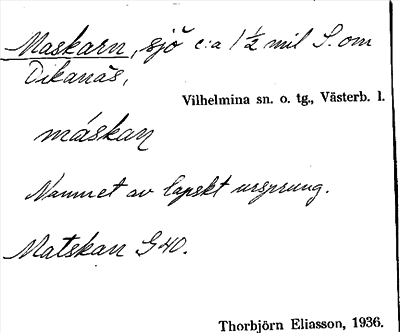 Maskarn, sjö c:a 1 ½ mil S. om
Dikanäs,
Vilhelmina sn. o. tg., Västerb. l.
máskan
Namnet av lapskt ursprung.
Matskan G40.
Thorbjörn Eliasson, 1936.